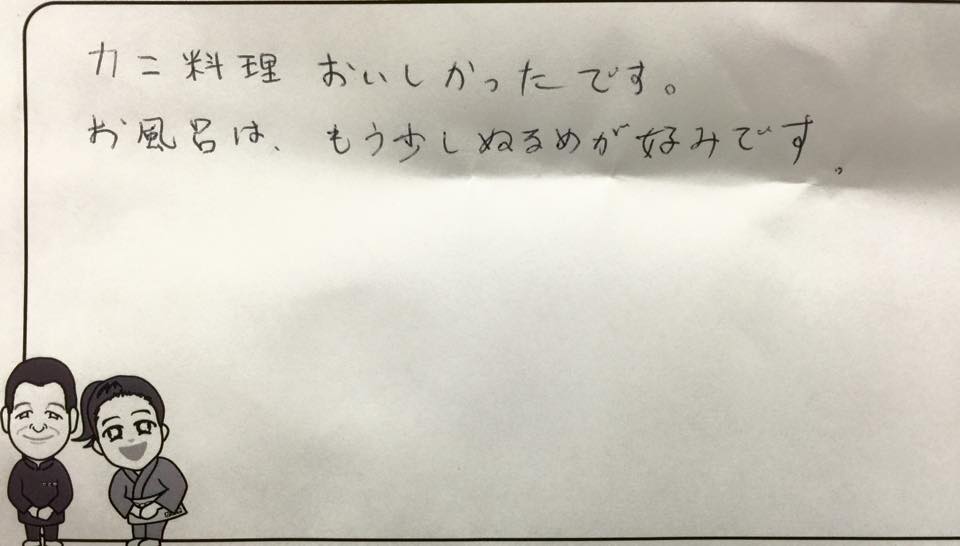 カニ料理 おいしかったです。
お風呂は、もう少しぬるめが好みです。